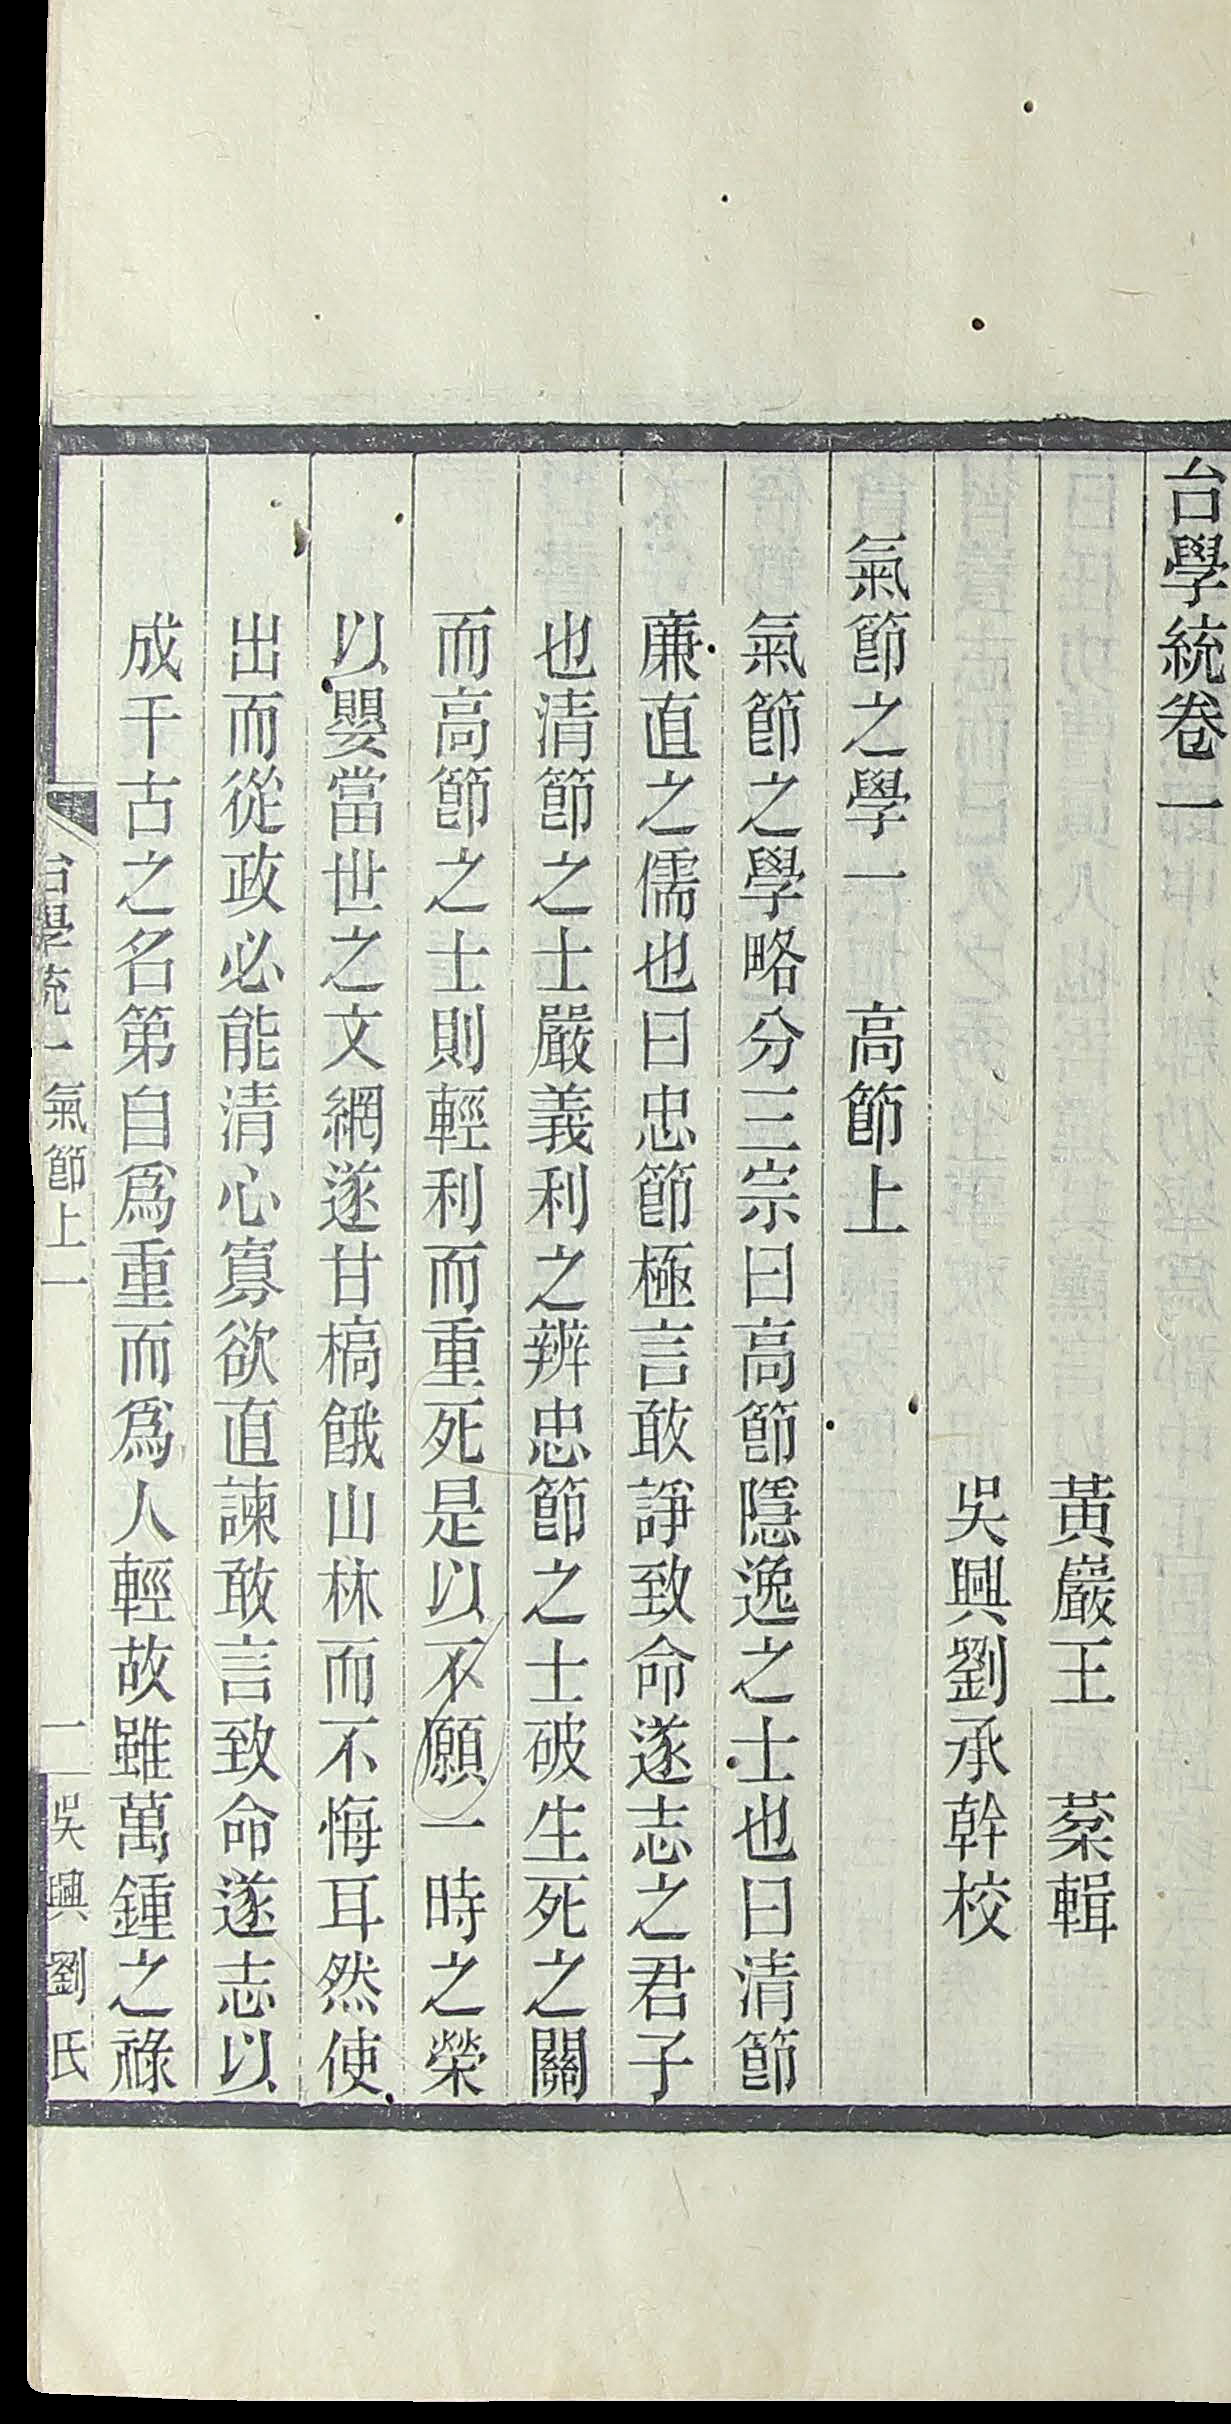 台學統卷一
黃嚴王　棻輯
吳興劉承幹校
氣節之學一　高節上
氣節之學略分三宗曰高節隱逸之士也曰清節
廉直之儒也曰忠節極言敢諍致命遂志之君子
也清節之士嚴義利之辨忠節之士破生死之關
而高節之士則輕利而重死是以不願一時之榮
以嬰當世之文網遂甘槁餓山林而不悔耳然使
出而從政必能清心寡欲直諫敢言致命遂志以
成千古之名第自爲重而爲人輕故雖萬鍾之祿
台學統一 氣節上一　一　吳興劉氏